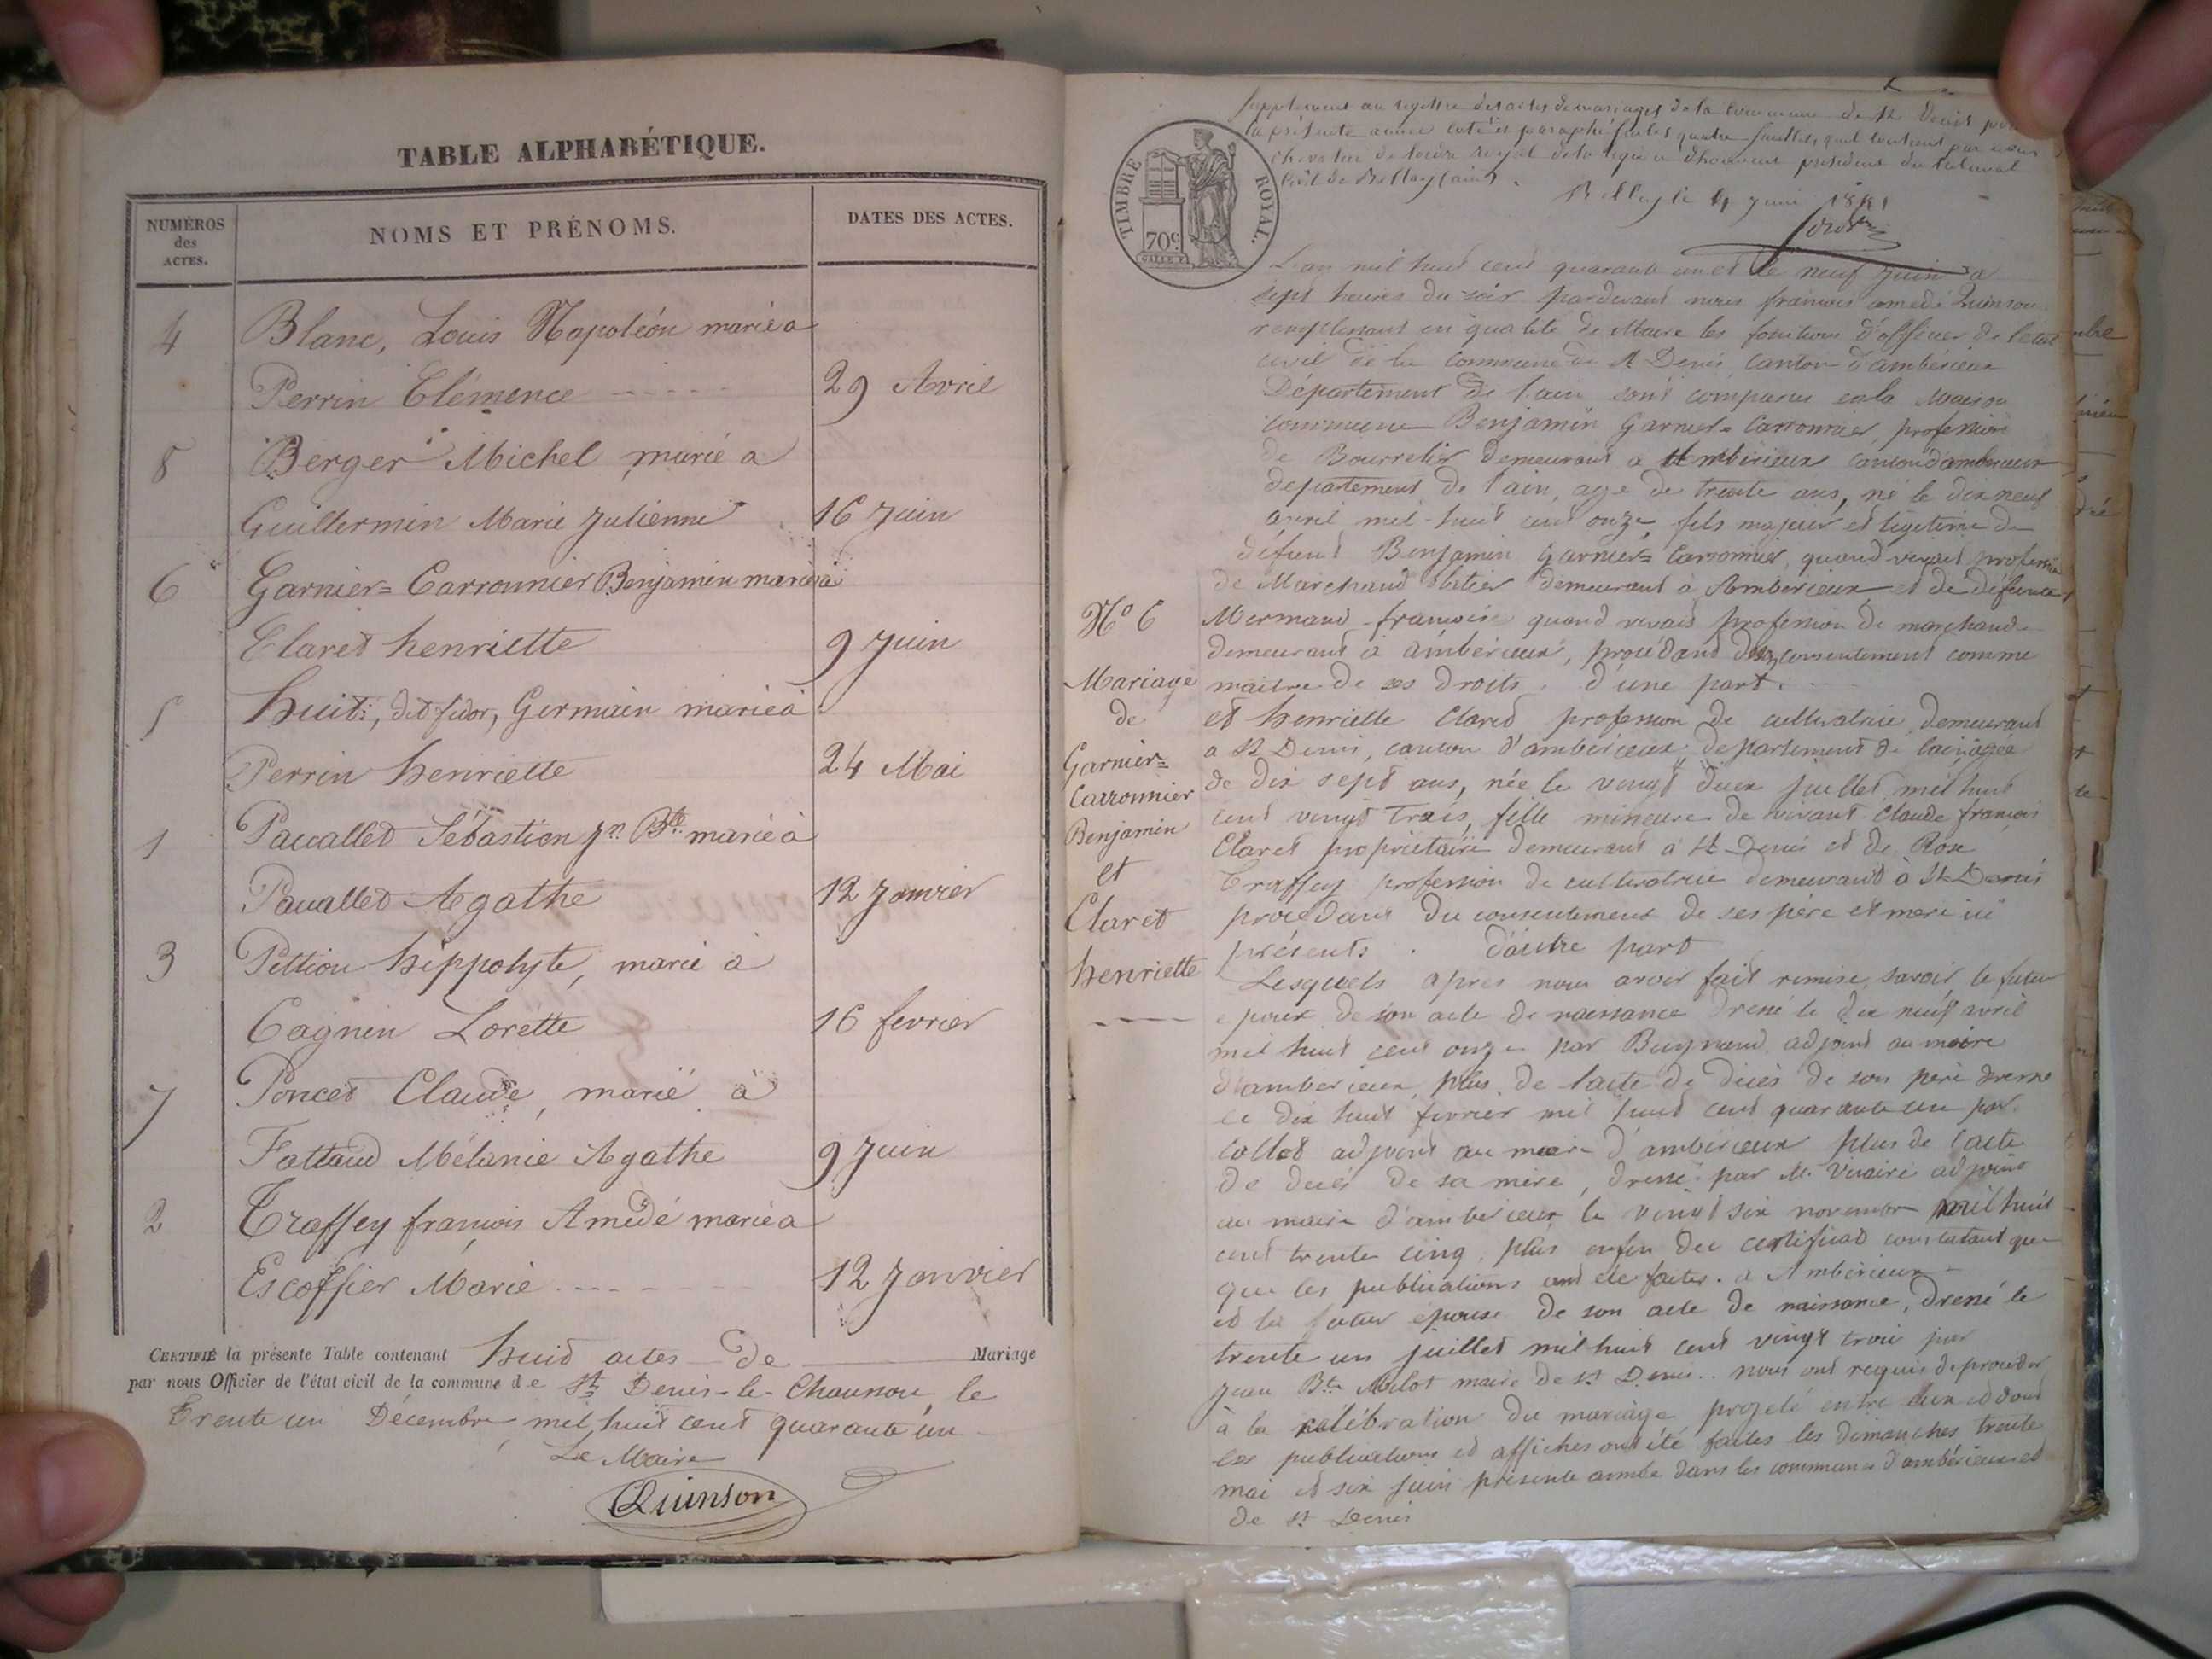 TABLE ALPHABÉTIQUE.
NUMÉROS des ACTES.
NOMS ET PRÉNOMS.
DATES DES ACTES.
4 Blanc, Louis Napoléon marié a
Perrin Clémence 29 Avril
8 Berger Michel marié a
Guillermin Marie Julienne 16 Juin
6 Garnier= Carronnier Benjamin marié à
Claret henriette 9 Juin
5 huit, dit fidor, Germain marié à
Perrin henriette 24 Mai
1 Pacallet Sébastion jn. Bte. marié à
Pacallet Agathe 12 Janvier
3 Pettion hippolyte, marié à
Cagnin Lorette 16 fevrier
7 Poncet Claude, marié à
Fattaud Mélanie Agathe 9 Juin
2 Traffey francois Amédé marié a
Escoffier Marie 12 Janvier
CERTIFIÉ la présente Table contenant huit actes de Mariage
par nous Officier de l'état civil de la commune de St Denis-le-Chausson, le
Trente un Décembre mil huit cent quarante un
Le Maire
Quinson
TIMBRE ROYAL.
70c
Supplément au registre des actes de mariages de la commune de St Denis
la présente année coté et paraphé quatre feuillets par nous
chevalier de l'ordre royal de la légion d'honneur président du tribunal
civil de Belley (ain)
Belley le 4 juin 1841
L'an mil huit cent quarante un et le neuf Juin a
sept heures du soir pardevant nous francois amédé Quinson
remplissant en qualité de Maire les fonctions d'officier de l'etat
civil de la commune de St Denis canton d'ambérieux
Département de l'ain sont comparus en la Maison
commune Benjamin Garnier= Carronnier, profession
de Bourrelier demeurant a Ambérieux canton d'amberieux
departement de l'ain, age de trente ans, né le dix neuf
avril mil huit cent onze, fils majeur et légitime de
défunt Benjamin Garnier= Carronnier, quand vivait profession
de Marchand demeurant à Amberieux et de défunte
N° 6
Mermand francoise quand vivait profession de marchande
demeurant à ambérieux, procédant de son consentement comme
Mariage
maitre de ses droits. d'une part.
de
et henriette Claret profession de cultivatrice demeurant
a St Denis, canton d'amberieux departement de l'ain, agée
Garnier=
de dix sept ans, née le vingt deux juillet mil huit
Carronnier
cent vingt trois, fille mineure de vivant Claude francois
Benjamin
Claret propriétaire demeurant à St Denis et de Rose
et
Traffey profession de cultivatrice demeurant à St Denis
Claret
procedant du consentement de ses père et mere ici
présents. d'autre part
henriette
Lesquels apres nous avoir fait remise, savoir, le futur
epoux de son acte de naissance dressé le dix neuf avril
mil huit cent onze par Buynand adjoint au maire
d'amberieux, plus de l'acte de décès de son pere dressé
le dix huit fevrier mil huit cent quarante un par
Collet adjoint au maire d'ambérieux plus de l'acte
de decés de sa mère, dressé par M. Vicaire adjoint
au maire d'amberieux le vingt six novembre mil huit
cent trente cinq. plus enfin du certificat constatant que
que les publications ont été faites. a Ambérieux
et la future épouse de son acte de naissance, dressé le
trente un juillet mil huit cent vingt trois par
Jean Bte Melot maire de St Denis.. nous ont requis de procéder
à la célébration du mariage projeté entre eux et dont
les publications et affiches ont été faites les dimanches trente
mai et six juin présente année dans les communes d'ambérieux et
de St Denis